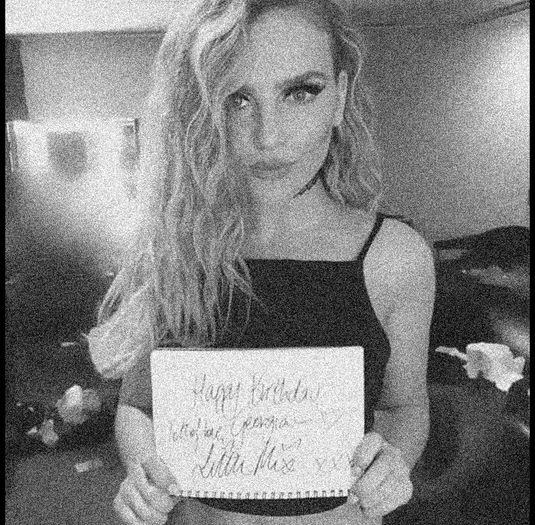 Happy Birthday
Georgia
Little Mix xxx